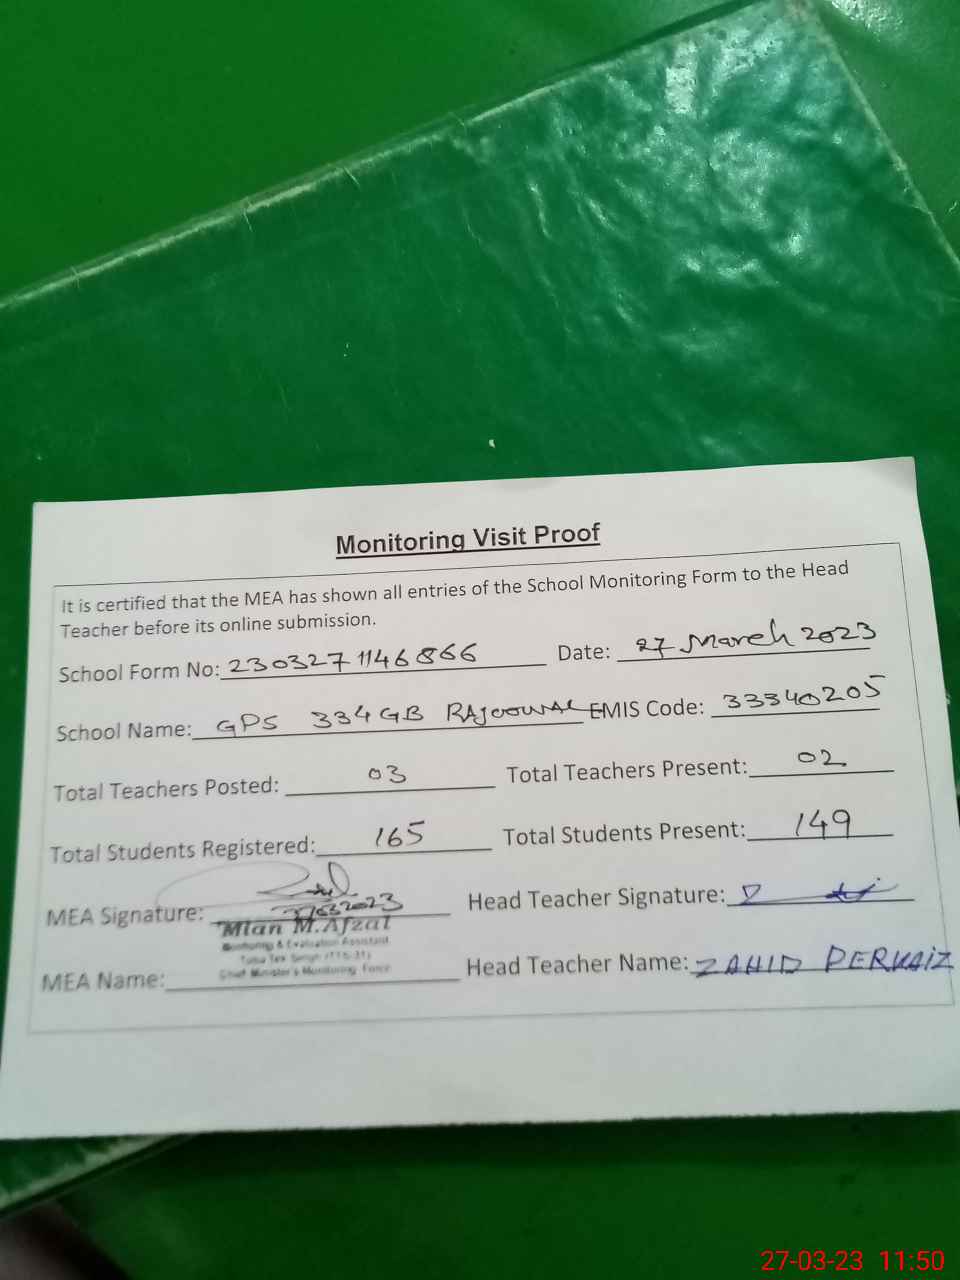 Monitoring Visit Proof
It is certified that the MEA has shown all entries of the School Monitoring Form to the Head
Teacher before its online submission.
School Form No: 2303271146866 Date: 27 March 2023
School Name: GPS 334 GB RAJOOWAL EMIS Code: 33340205
Total Teachers Posted: 03 Total Teachers Present: 02
Total Students Registered: 165 Total Students Present: 149
MEA Signature: Head Teacher Signature:
Mian M.Afzal
Monitoring & Evaluation Assistant
Toba Tek Singh
Chief Minister's Monitoring Force
MEA Name: Head Teacher Name: ZAHID PERVAIZ
27-03-23 11:50